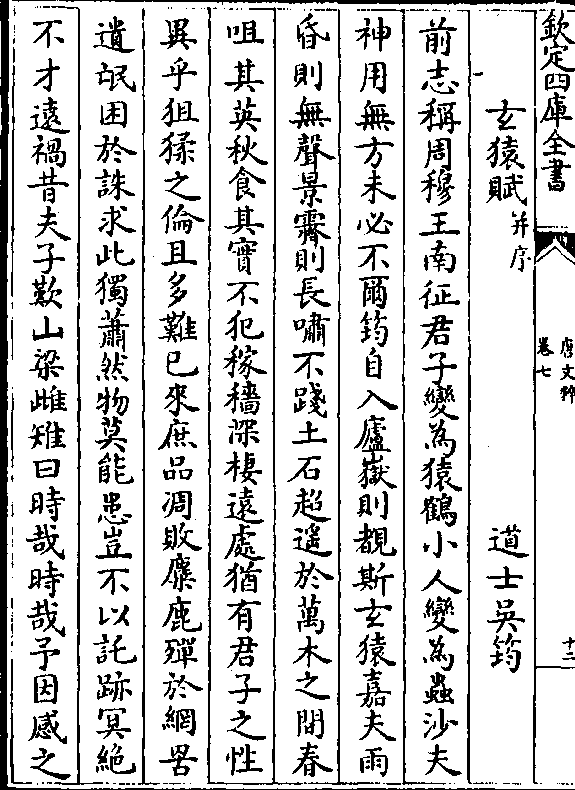 欽定四庫全書
唐文粹
卷七
十二
玄猿賦并序
道士吳筠
前志稱周穆王南征君子變為猿鶴小人變為蟲沙夫
神用無方未必不爾筠自入廬嶽則覩斯玄猿嘉夫雨
昏則無聲景霽則長嘯不踐土石超遥於萬木之間春
咀其英秋食其實不犯稼穡深棲遠處猶有君子之性
異乎狙猱之倫且多難已來庶品凋敗麋鹿殫於網罟
遺甿困於誅求此獨蕭然物莫能患豈不以託跡冥絶
不才遠禍昔夫子歎山梁雌雉曰時哉時哉予因感之